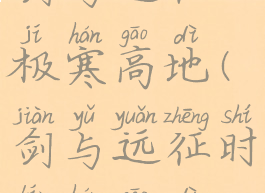 jí hán gāo dì
极寒高地(
jiàn yǔ yuǎn zhēng shí
剑与远征时